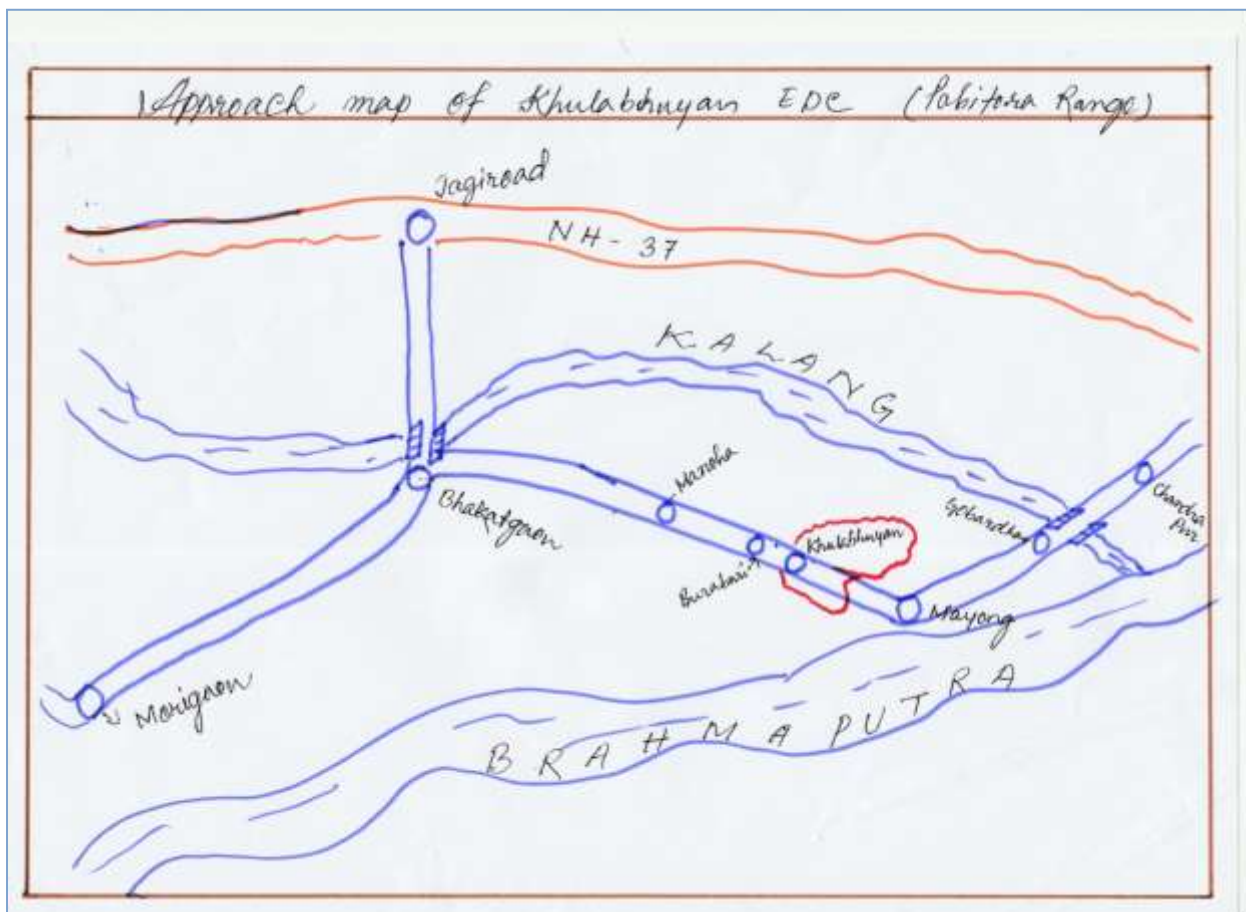 Approach map of Khulabhuyan EDC (Pabitora Range)
Jagiroad
NH-37
KALANG
Manoha
Bhakatgaon
Burabari
Khulabhuyan
Gobardhan
Chandra
Pur
Mayong
Morigaon
BRAHMAPUTRA